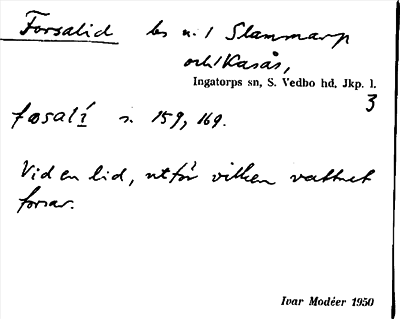 Forsalid bs u. / Slammarp
och / Kasås,
Ingatorps sn, S. Vedbo hd, Jkp. l.
3
fosalí s. 159, 169.
Vid en lid, utför vilken vattnet
forsar.
Ivar Modéer 1950